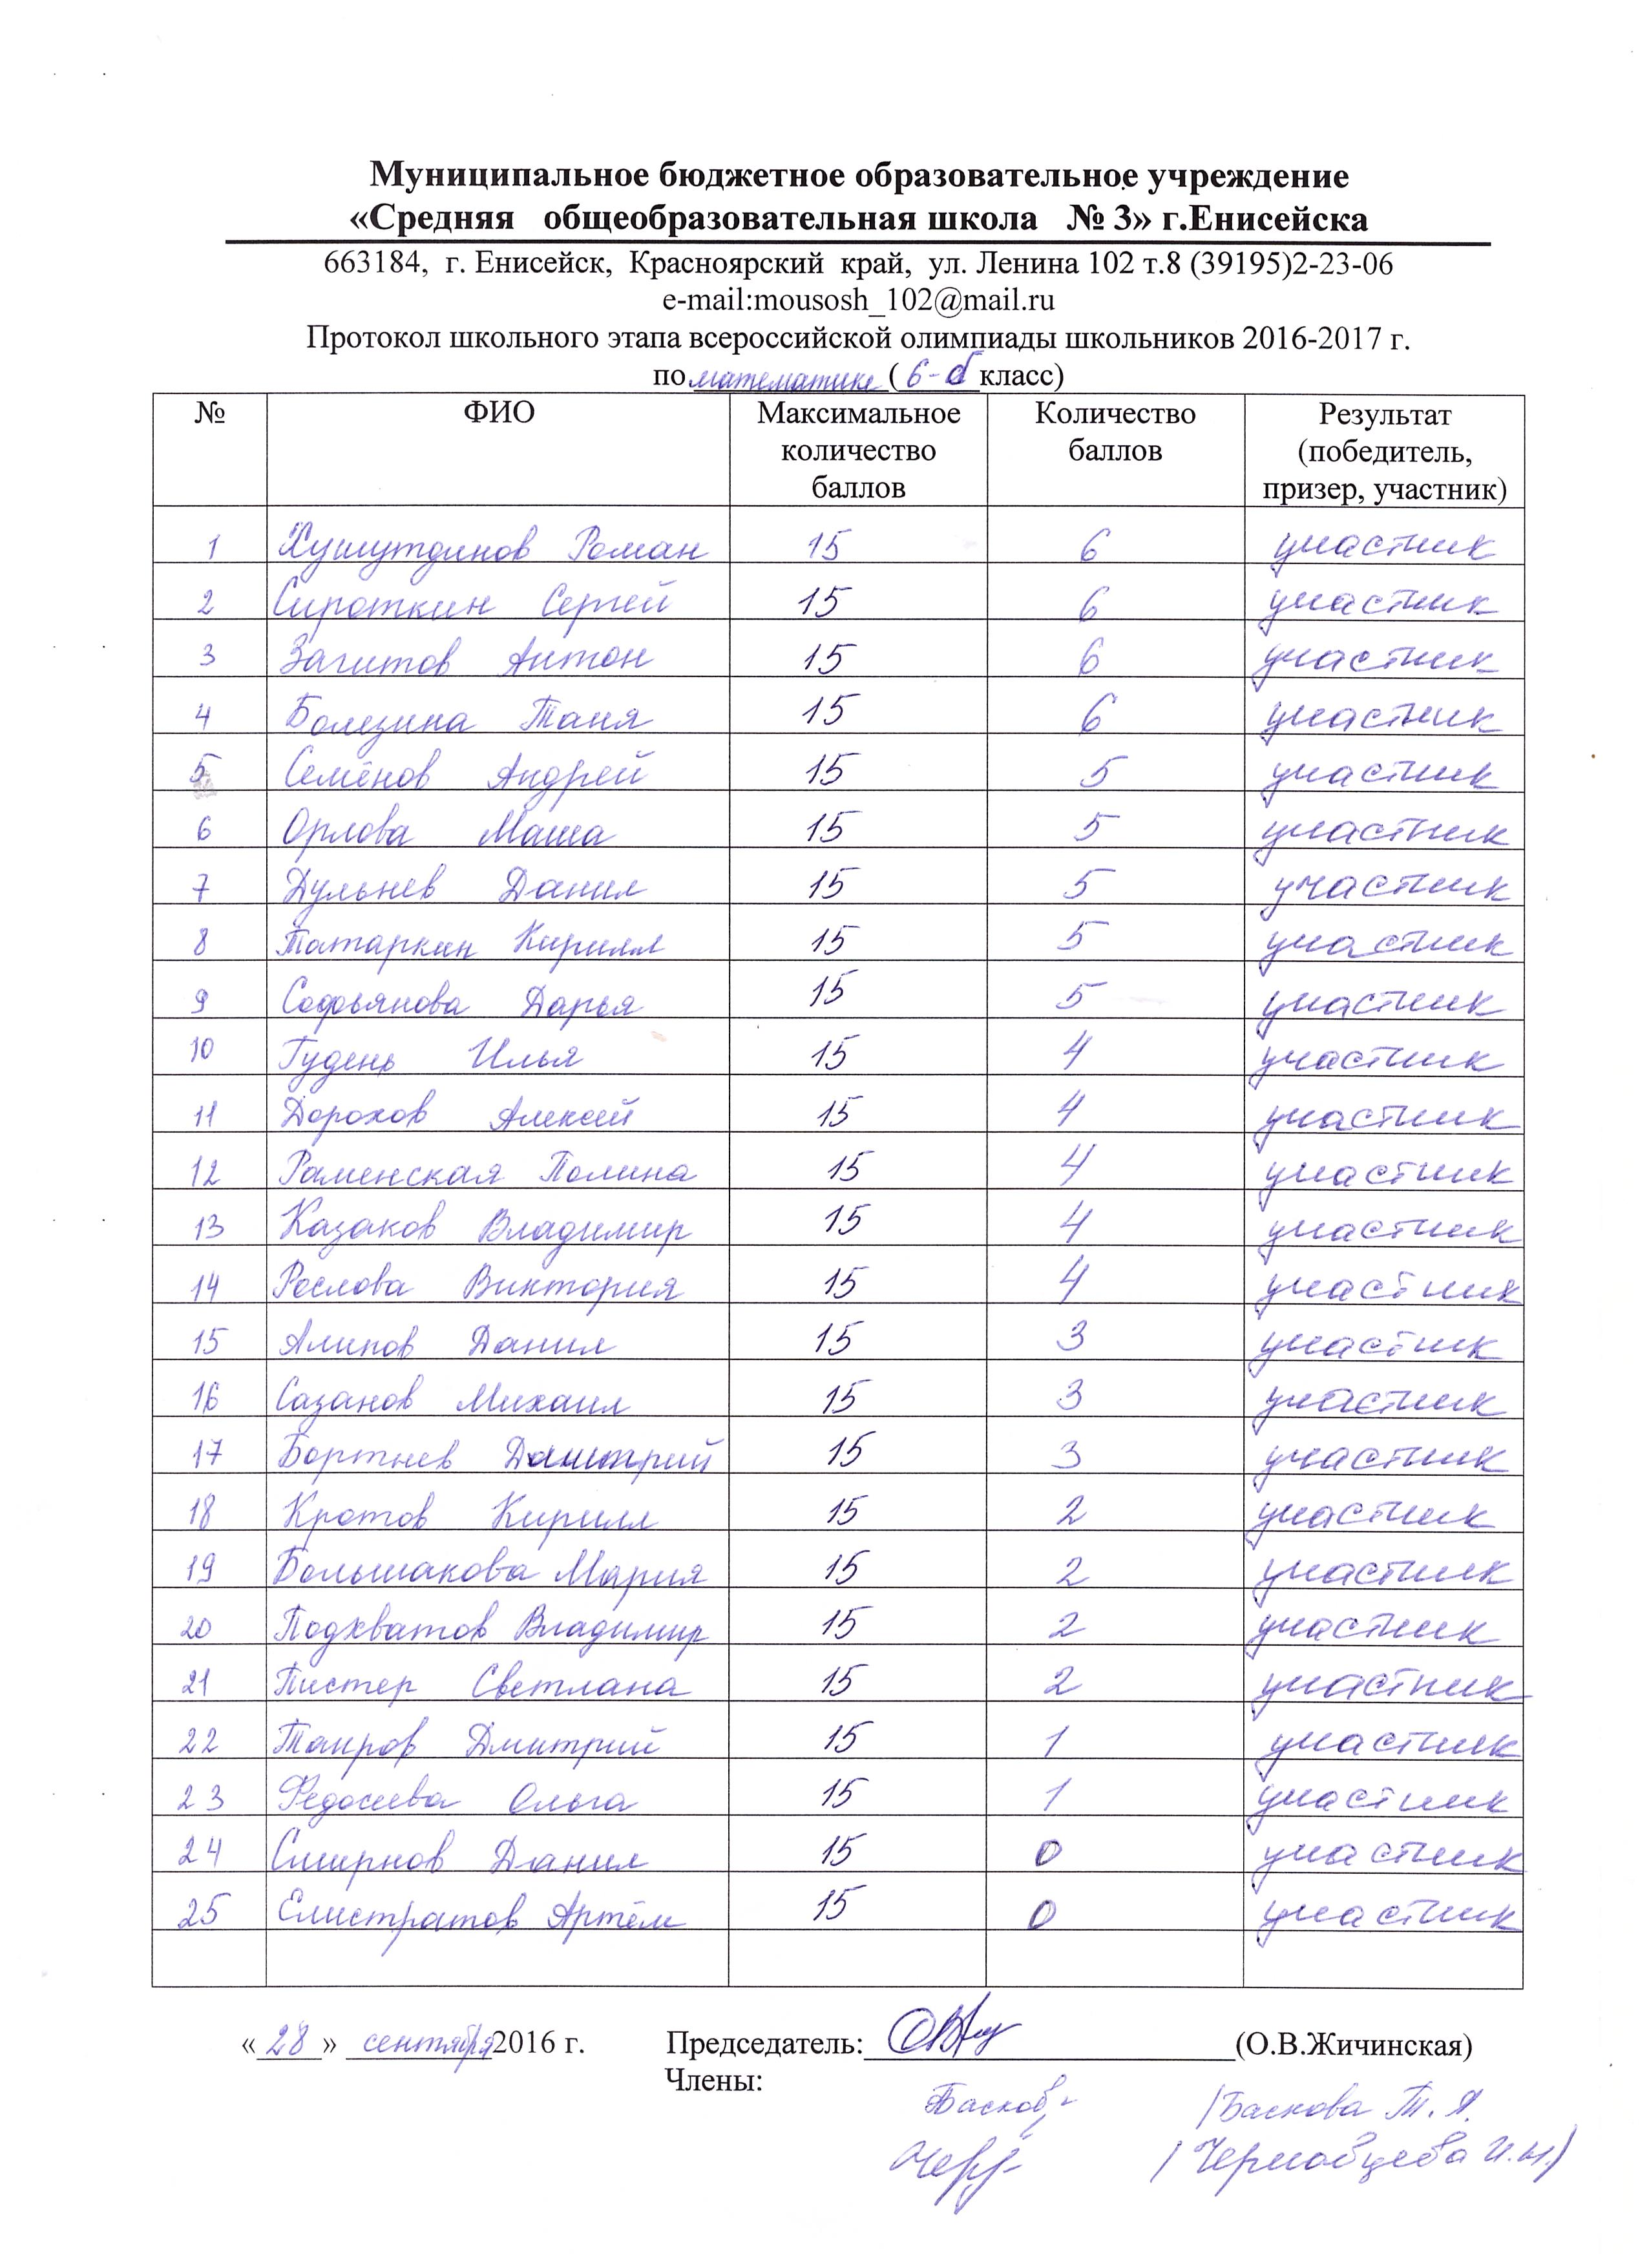 Муниципальное бюджетное образовательное учреждение
«Средняя общеобразовательная школа № 3» г.Енисейска
663184, г. Енисейск, Красноярский край, ул. Ленина 102 т.8 (39195)2-23-06
e-mail:mousosh_102@mail.ru
Протокол школьного этапа всероссийской олимпиады школьников 2016-2017 г.
по математике (6-б класс)
№ ФИО Максимальное количество баллов Количество баллов Результат (победитель, призер, участник)
1 Хушутдинов Роман 15 6 участник
2 Сироткин Сергей 15 6 участник
3 Загитов Антон 15 6 участник
4 Болезина Таня 15 6 участник
5 Семёнов Андрей 15 5 участник
6 Орлова Маша 15 5 участник
7 Дульнев Данил 15 5 участник
8 Татаркин Кирилл 15 5 участник
9 Софьянова Дарья 15 5 участник
10 Гудень Илья 15 4 участник
11 Дорохов Алексей 15 4 участник
12 Раменская Полина 15 4 участник
13 Казаков Владимир 15 4 участник
14 Рослова Виктория 15 4 участник
15 Алипов Данил 15 3 участник
16 Сазанов Михаил 15 3 участник
17 Бортнев Дмитрий 15 3 участник
18 Кротов Кирилл 15 2 участник
19 Большакова Мария 15 2 участник
20 Подхватов Владимир 15 2 участник
21 Пистер Светлана 15 2 участник
22 Таиров Дмитрий 15 1 участник
23 Федосеева Ольга 15 1 участник
24 Смирнов Данил 15 0 участник
25 Елистратов Артём 15 0 участник
«28» сентября 2016 г. Председатель: (О.В.Жичинская)
Члены:
/Баскова Т. Я.
/Черновцева И.Н./